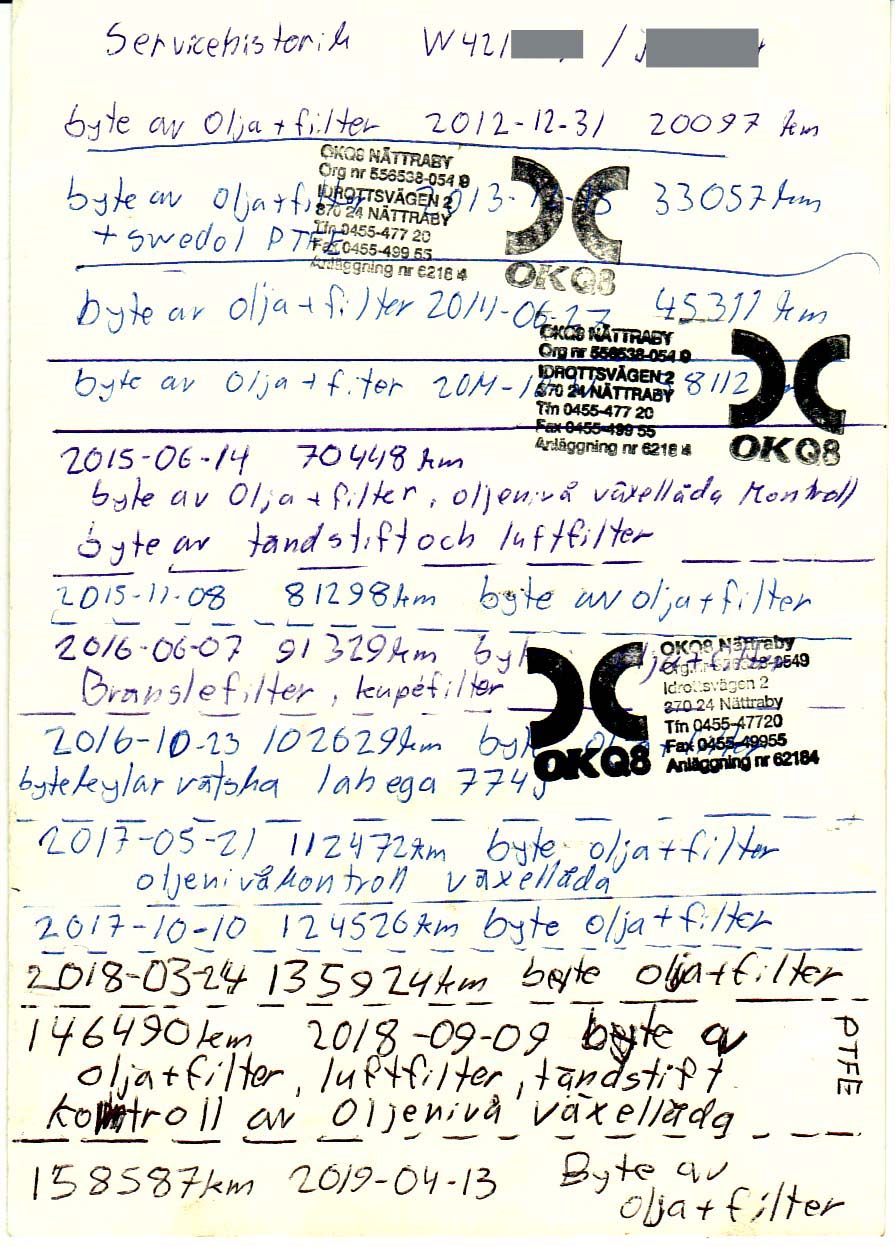 Servicehistorik W421 /
byte av olja + filter 2012-12-31 20097 km
byte av olja + filter 2013-12-15 33057 km
+ swedol PTFE
OKQ8 NÄTTRABY
Org nr 556538-054 9
IDROTTSVÄGEN 2
370 24 NÄTTRABY
Tfn 0455-477 20
Fax 0455-499 55
Anläggning nr 6218 4
OKQ8
byte av olja + filter 2014-06-27 45311 km
byte av olja + filter 2014- 8112
OKQ8 NÄTTRABY
Org nr 556538-054 9
IDROTTSVÄGEN 2
370 24 NÄTTRABY
Tfn 0455-477 20
Fax 0455-499 55
Anläggning nr 6218 4
OKQ8
2015-06-14 70448 km
byte av olja + filter, oljenivå växellåda kontroll
byte av tändstift och luftfilter
2015-11-08 81298 km byte av olja + filter
2016-06-07 91329 km byte olja + filter
Bränslefilter, kupéfilter
OKQ8 Nättraby
Org.nr 556538-0549
Idrottsvägen 2
370 24 Nättraby
Tfn 0455-47720
Fax 0455-49955
Anläggning nr 62184
OKQ8
2016-10-23 102629 km byte olja + filter
byte kylar vätska lahega 774
2017-05-21 112472 km byte olja + filter
oljenivåkontroll växellåda
2017-10-10 124526 km byte olja + filter
2018-03-24 135924 km byte olja + filter
146490 km 2018-09-09 byte av
olja + filter, luftfilter, tändstift
kontroll av oljenivå växellåda
PTFE
158587 km 2019-04-13 Byte av
olja + filter